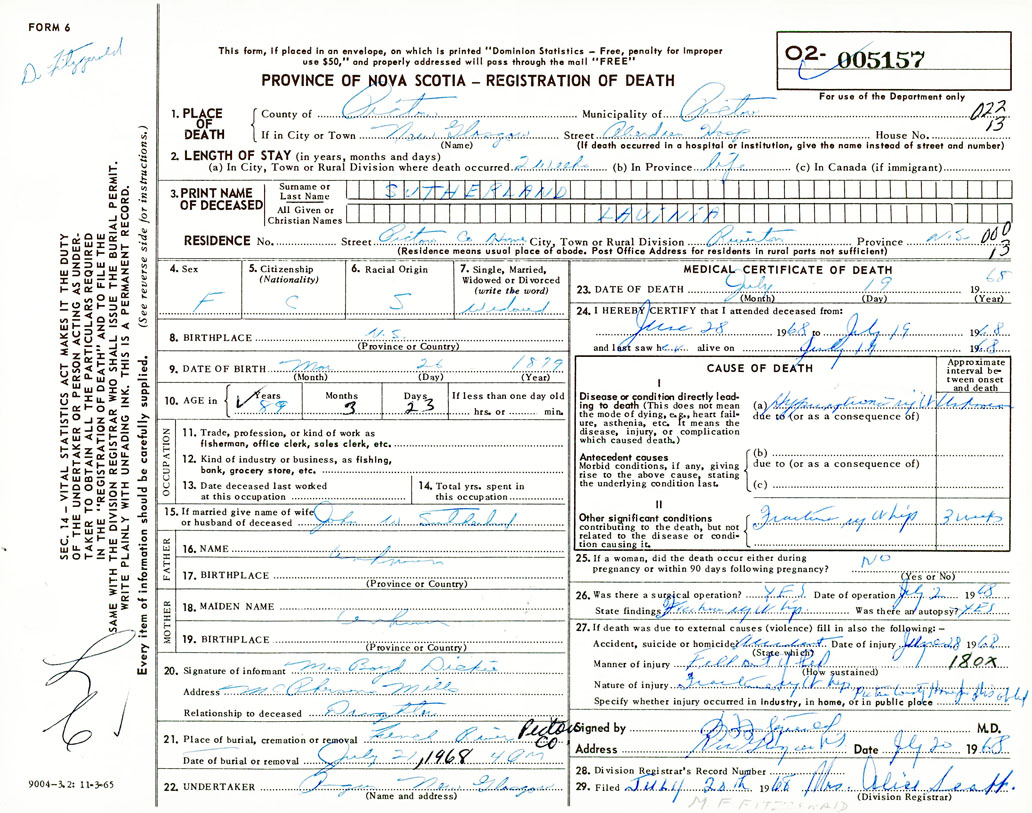 FORM 6
D. Fitzgerald
This form, if placed in an envelope, on which is printed "Dominion Statistics – Free, penalty for improper
use $50," and properly addressed will pass through the mail "FREE"
PROVINCE OF NOVA SCOTIA – REGISTRATION OF DEATH
O2- 005157
For use of the Department only
022
13
1. PLACE OF DEATH
County of Pictou Municipality of Pictou
If in City or Town New Glasgow Street Aberdeen Hosp House No.
(Name) (If death occurred in a hospital or institution, give the name instead of street and number)
2. LENGTH OF STAY (in years, months and days)
(a) In City, Town or Rural Division where death occurred 2 weeks (b) In Province life (c) In Canada (if immigrant)
3. PRINT NAME OF DECEASED
Surname or Last Name SUTHERLAND
All Given or Christian Names LAVINIA
RESIDENCE No. Street Pictou Co Home City, Town or Rural Division Riverton Province N.S. 000
13
(Residence means usual place of abode. Post Office Address for residents in rural parts not sufficient)
4. Sex
F
5. Citizenship
(Nationality)
C
6. Racial Origin
S
7. Single, Married,
Widowed or Divorced
(write the word)
Widowed
8. BIRTHPLACE N.S.
(Province or Country)
9. DATE OF BIRTH Mar 26 1879
(Month) (Day) (Year)
10. AGE in Years 89 Months 3 Days 23 If less than one day old
hrs. or min.
OCCUPATION
11. Trade, profession, or kind of work as
fisherman, office clerk, sales clerk, etc.
12. Kind of industry or business, as fishing,
bank, grocery store, etc.
13. Date deceased last worked
at this occupation
14. Total yrs. spent in
this occupation
15. If married give name of wife
or husband of deceased John W Sutherland
FATHER
16. NAME
17. BIRTHPLACE
(Province or Country)
MOTHER
18. MAIDEN NAME Unknown
19. BIRTHPLACE
(Province or Country)
20. Signature of informant Mrs Boyd
Address McPhersons Mills
Relationship to deceased Daughter
21. Place of burial, cremation or removal French River Pictou Co
Date of burial or removal July 21, 1968
22. UNDERTAKER New Glasgow
(Name and address)
MEDICAL CERTIFICATE OF DEATH
23. DATE OF DEATH July 19 1968
(Month) (Day) (Year)
24. I HEREBY CERTIFY that I attended deceased from:
June 28 1968 to July 19 1968
and last saw her alive on July 19 1968
CAUSE OF DEATH
Approximate interval between onset and death
I
Disease or condition directly leading to death (This does not mean the mode of dying, e.g., heart failure, asthenia, etc. It means the disease, injury, or complication which caused death.)
(a)
due to (or as a consequence of)
Antecedent causes
Morbid conditions, if any, giving rise to the above cause, stating the underlying condition last.
(b)
due to (or as a consequence of)
(c)
II
Other significant conditions
contributing to the death, but not related to the disease or condition causing it.
Fracture rt hip 3 weeks
25. If a woman, did the death occur either during
pregnancy or within 90 days following pregnancy? NO
(Yes or No)
26. Was there a surgical operation? YES Date of operation July 2 1968
State findings Fracture rt hip Was there an autopsy? YES
27. If death was due to external causes (violence) fill in also the following: –
Accident, suicide or homicide Accident Date of injury June 28 1968
(State which)
Manner of injury Fell out of bed 180X
(How sustained)
Nature of injury Fracture rt hip
Specify whether injury occurred in industry, in home, or in public place
Signed by M.D.
Address New Glasgow NS Date July 20 1968
28. Division Registrar's Record Number
29. Filed July 20th 1968 Mrs. Alice Scott.
(Division Registrar)
M F FITZGERALD
SEC. 14 – VITAL STATISTICS ACT MAKES IT THE DUTY
OF THE UNDERTAKER OR PERSON ACTING AS UNDER-
TAKER TO OBTAIN ALL THE PARTICULARS REQUIRED
IN THE "REGISTRATION OF DEATH" AND TO FILE THE
SAME WITH THE DIVISION REGISTRAR WHO SHALL ISSUE THE BURIAL PERMIT.
WRITE PLAINLY WITH UNFADING INK. THIS IS A PERMANENT RECORD.
Every item of information should be carefully supplied. (See reverse side for instructions.)
9004–3.2: 11-3-65